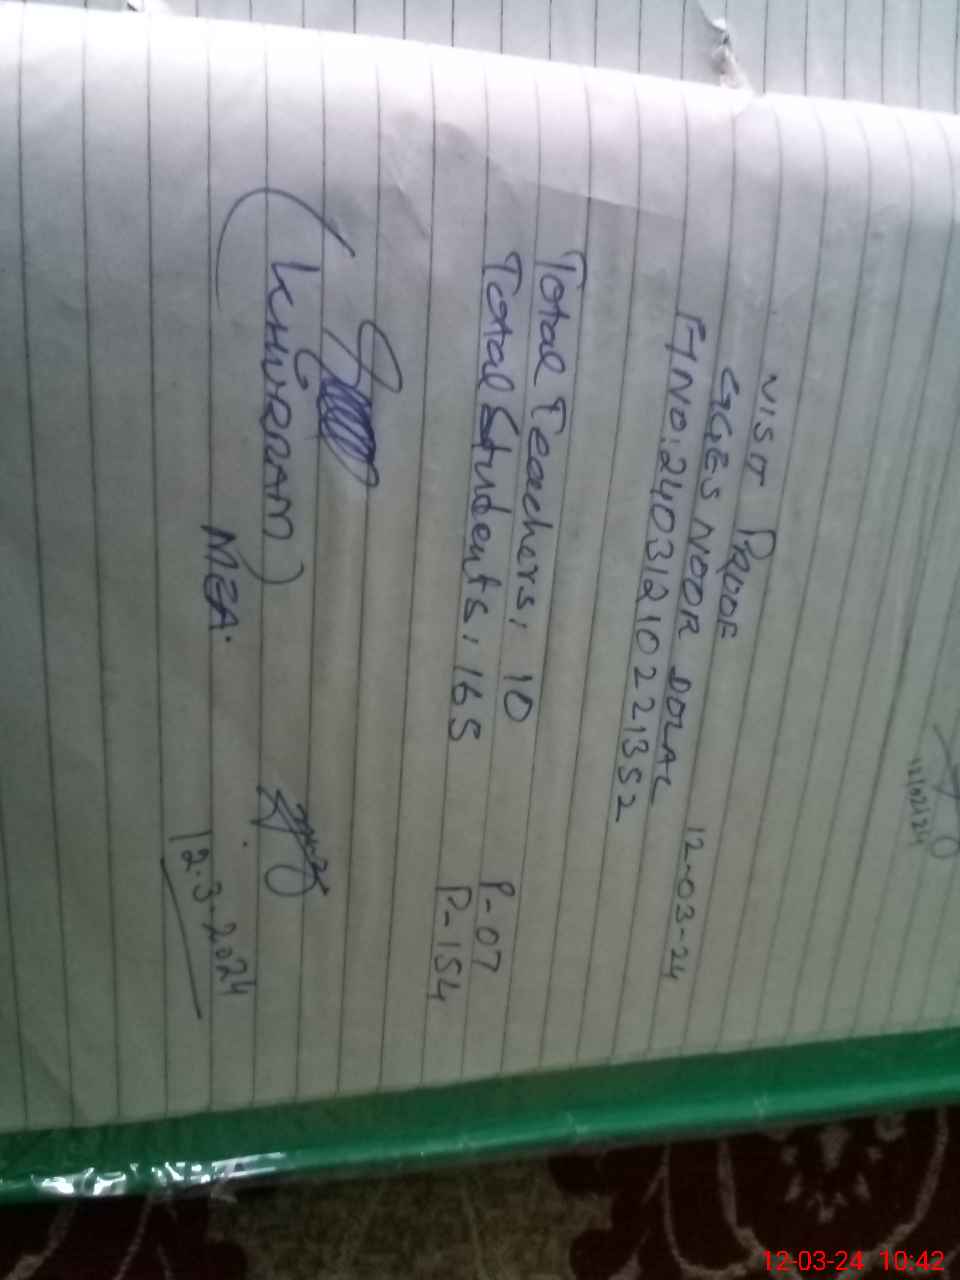 12/02/24
VISIT PROOF
GGES NOOR DOLAL 12-03-24
Total Teachers, 10 P-07
Total Students, 165 P-154
(KHURRAM)
MEA.
12.3-2024
12-03-24 10:42